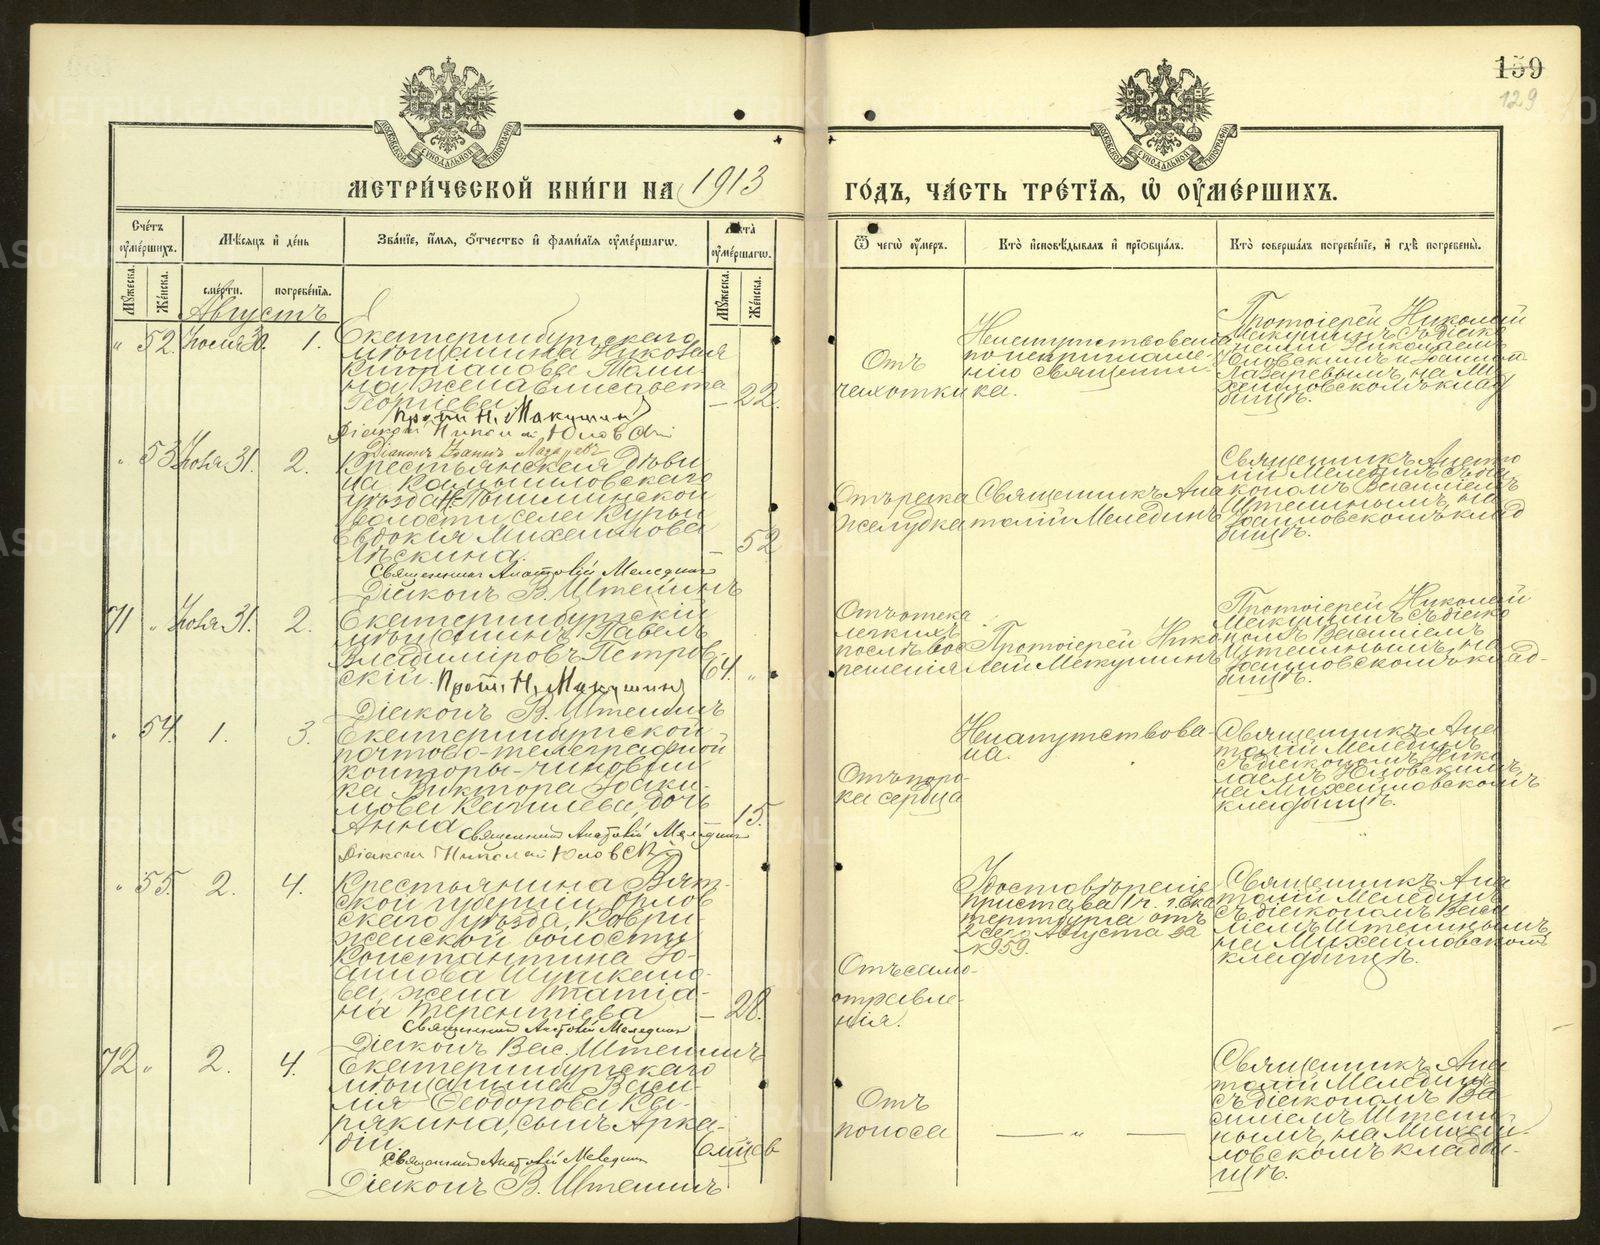 159
129
МЕТРИ́ЧЕСКОЙ КНИ́ГИ НА 1913
ГО́ДЪ, ЧА́СТЬ ТРЕ́ТІЯ, Ѽ ОУ҆МЕ́РШИХЪ.
Сче́тъ оу҆ме́ршихъ.
Мѣ́сяцъ и҆ де́нь
Зва́ніе, и҆́мя, ѻ҆́тчество и҆ фами́лія оу҆ме́ршагѡ.
Лѣ́та оу҆ме́ршагѡ.
Ѿ чегѡ̀ оу҆́меръ.
Кто̀ и҆сповѣ́дывалъ и҆ прїѻбща́лъ.
Кто̀ соверша́лъ погребе́ніе, и҆ гдѣ̀ погребены̀.
Мꙋ́жеска.
Же́нска.
сме́рти.
погребе́нія.
Мꙋ́жеска.
Же́нска.
Августъ
" 52. Іюля 30. 1.
Екатеринбургскаго
мѣщанина Николая
на жена Елисавета
Георгіева
— 22.
Прот. Н. Макушинъ
Діаконъ Николай Юновскій
Діаконъ Іоаннъ Лазаревъ
Отъ
чахотки
Ненапутствована
по неприглаше-
нію священни-
ка.
Протоіерей Николай
Макушинъ съ діако
нами Николаемъ
Юновскимъ и Іоанномъ
Лазаревымъ, на Ми
хайловскомъ клад
бищѣ.
" 53. Іюля 31. 2.
Крестьянская дѣви
ца Камышловскаго
уѣзда Н. Пышминской
волости, села Курьи
Евдокія Михаилова
Лѣскина.
— 52
Священникъ Анатолій Меледин
Діаконъ В. Штейнинъ
Отъ рака
желудка
Священникъ Ана
толій Мелединъ
Священникъ Анато
лій Мелединъ съ діа
кономъ Василіемъ
на
Іоанновскомъ клад
бищѣ.
71 " Іюля 31. 2.
Екатеринбургскій
мѣщанинъ Павелъ
Владиміровъ Петров-
скій.
64. "
Прот. Н. Макушинъ
Діаконъ В.
Отъ отека
легкихъ
послѣ вос
паленія
Протоіерей Нико-
лай Макушинъ
Протоіерей Николай
Макушинъ съ діако
номъ Василіемъ
на
Іоанновскомъ клад-
бищѣ.
" 54. 1. 3.
Екатеринбургской
почтово-телеграфной
конторы-чиновни
ка Виктора Іоаки-
мова дочь
Анна
15.
Священникъ Анатолій Меледин
Діаконъ Николай Юновскій
Отъ поро-
ка сердца
Ненапутствова-
на.
Священникъ Ана
толій Мелединъ
съ діакономъ Нико
лаемъ Юновскимъ,
на Михайловскомъ
кладбищѣ.
" 55. 2. 4.
Крестьянина Вят-
ской губерніи, Орлов
скаго уѣзда,
волости
Константина Іо-
аннова
ва, жена Татіа-
на Терентіева
— 28.
Священникъ Анатолій Меледин
Діаконъ Вас.
Отъ само-
отравле-
нія.
Удостовѣреніе
Пристава 1 ч. г. Ека
теринбурга отъ
2 сего Августа за
№ 959.
Священникъ Ана
толій Мелединъ
съ діакономъ Васи
на Михайловскомъ
кладбищѣ.
72 " 2. 4.
Екатеринбургскаго
мѣщанина Васи-
лія Ѳеодорова Ка-
рякина, сынъ Арка-
дій.
6 мѣсяцев
Священникъ Анатолій Меледин
Діаконъ В.
Отъ
поноса
— " —
Священникъ Ана
толій Мелединъ
съ діакономъ Ва
силіемъ
на Михай-
ловскомъ кладби-
щѣ.